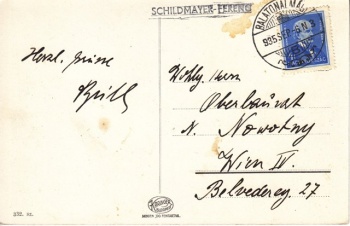 SCHILDMAYER FERENC
BALATONALMÁDI
935 SEP
Herzl. Grüsse
Wohlg. Herrn
Oberbaurat
N. Nowotny
Wien IV.
Belvedereg. 27
232. sz.